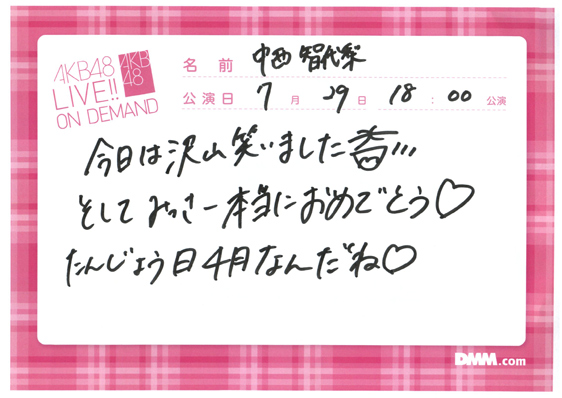 AKB48
LIVE!!
ON DEMAND
AKB
48
名前 中西 智代梨
公演日 7月29日 18:00公演
今日は沢山笑いました
そしてみっさー本当におめでとう♡
たんじょう日4月なんだね♡
DMM.com